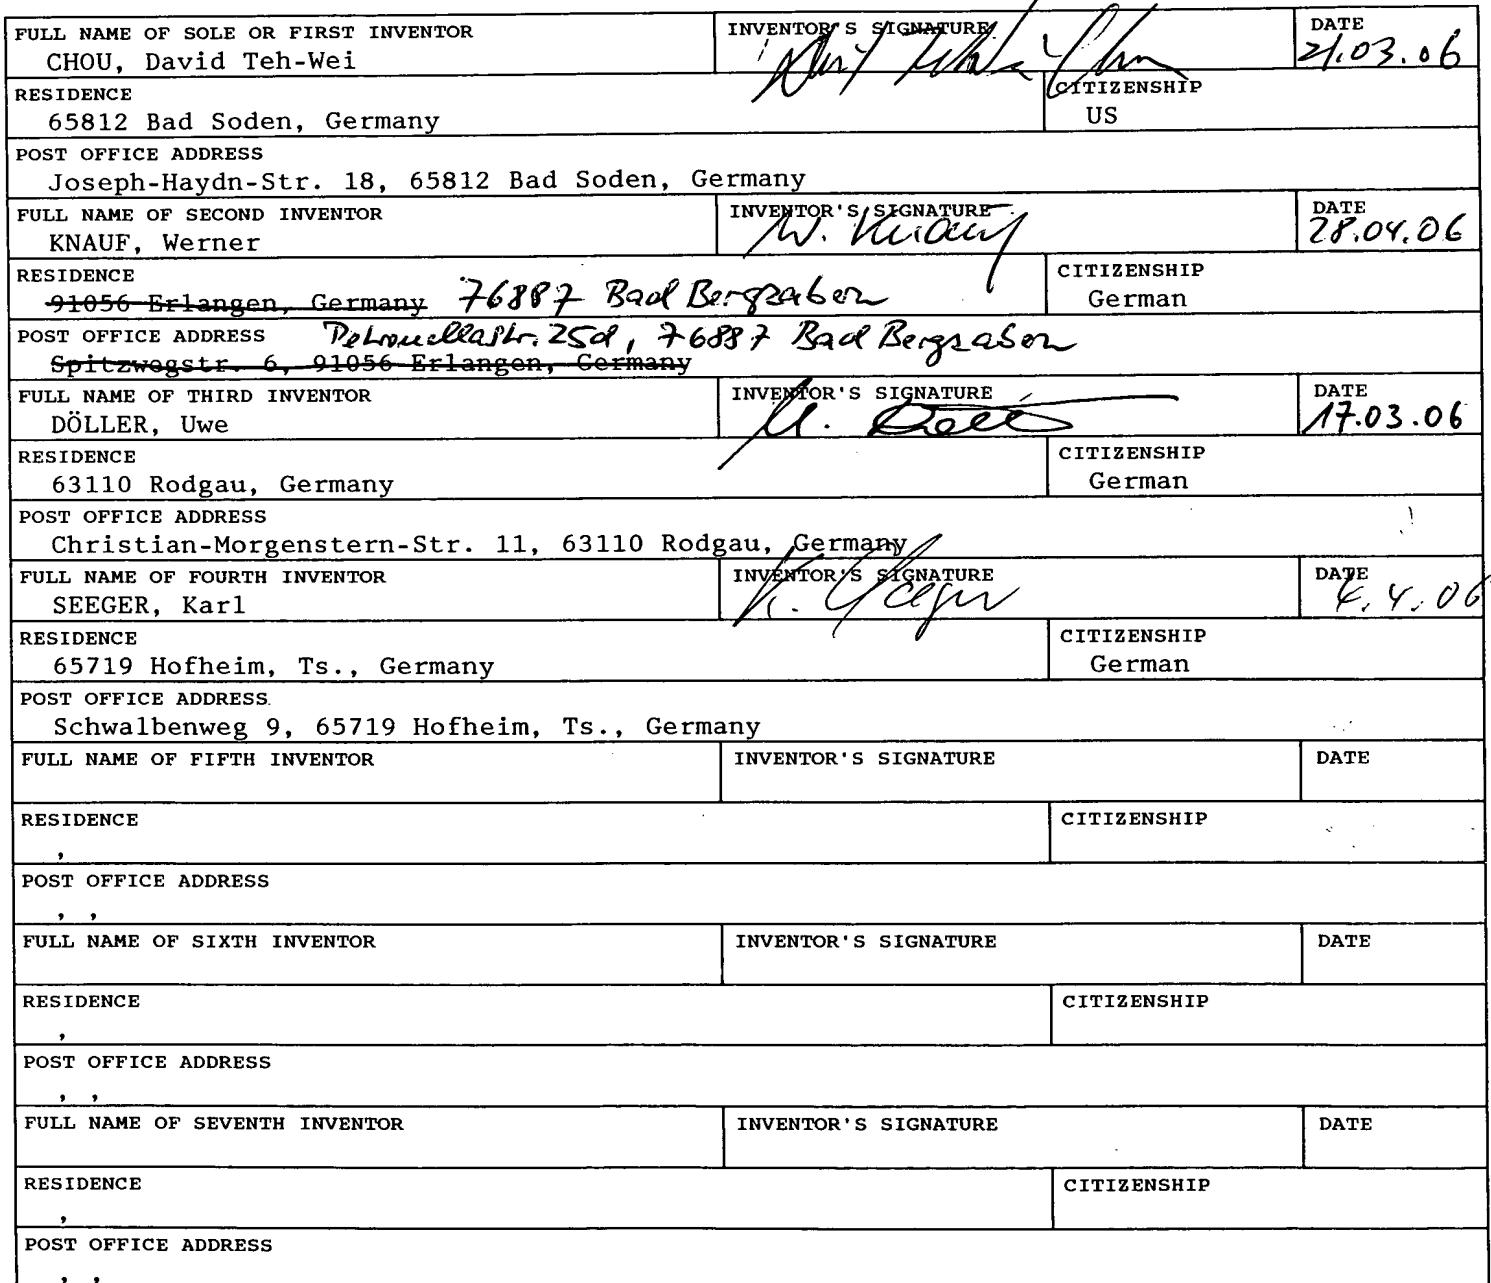 FULL NAME OF SOLE OR FIRST INVENTOR INVENTOR'S SIGNATURE DATE
CHOU, David Teh-Wei 21.03.06
RESIDENCE CITIZENSHIP
65812 Bad Soden, Germany US
POST OFFICE ADDRESS
Joseph-Haydn-Str. 18, 65812 Bad Soden, Germany
FULL NAME OF SECOND INVENTOR INVENTOR'S SIGNATURE DATE
KNAUF, Werner W. Knauf 28.04.06
RESIDENCE CITIZENSHIP
91056 Erlangen, Germany 76887 Bad Bergzabern German
POST OFFICE ADDRESS Petronellastr. 25d, 76887 Bad Bergzabern
Spitzwegstr. 6, 91056 Erlangen, Germany
FULL NAME OF THIRD INVENTOR INVENTOR'S SIGNATURE DATE
DÖLLER, Uwe 17.03.06
RESIDENCE CITIZENSHIP
63110 Rodgau, Germany German
POST OFFICE ADDRESS
Christian-Morgenstern-Str. 11, 63110 Rodgau, Germany
FULL NAME OF FOURTH INVENTOR INVENTOR'S SIGNATURE DATE
SEEGER, Karl K. Seeger 4.4.06
RESIDENCE CITIZENSHIP
65719 Hofheim, Ts., Germany German
POST OFFICE ADDRESS
Schwalbenweg 9, 65719 Hofheim, Ts., Germany
FULL NAME OF FIFTH INVENTOR INVENTOR'S SIGNATURE DATE
RESIDENCE CITIZENSHIP
,
POST OFFICE ADDRESS
, ,
FULL NAME OF SIXTH INVENTOR INVENTOR'S SIGNATURE DATE
RESIDENCE CITIZENSHIP
,
POST OFFICE ADDRESS
, ,
FULL NAME OF SEVENTH INVENTOR INVENTOR'S SIGNATURE DATE
RESIDENCE CITIZENSHIP
,
POST OFFICE ADDRESS
, ,